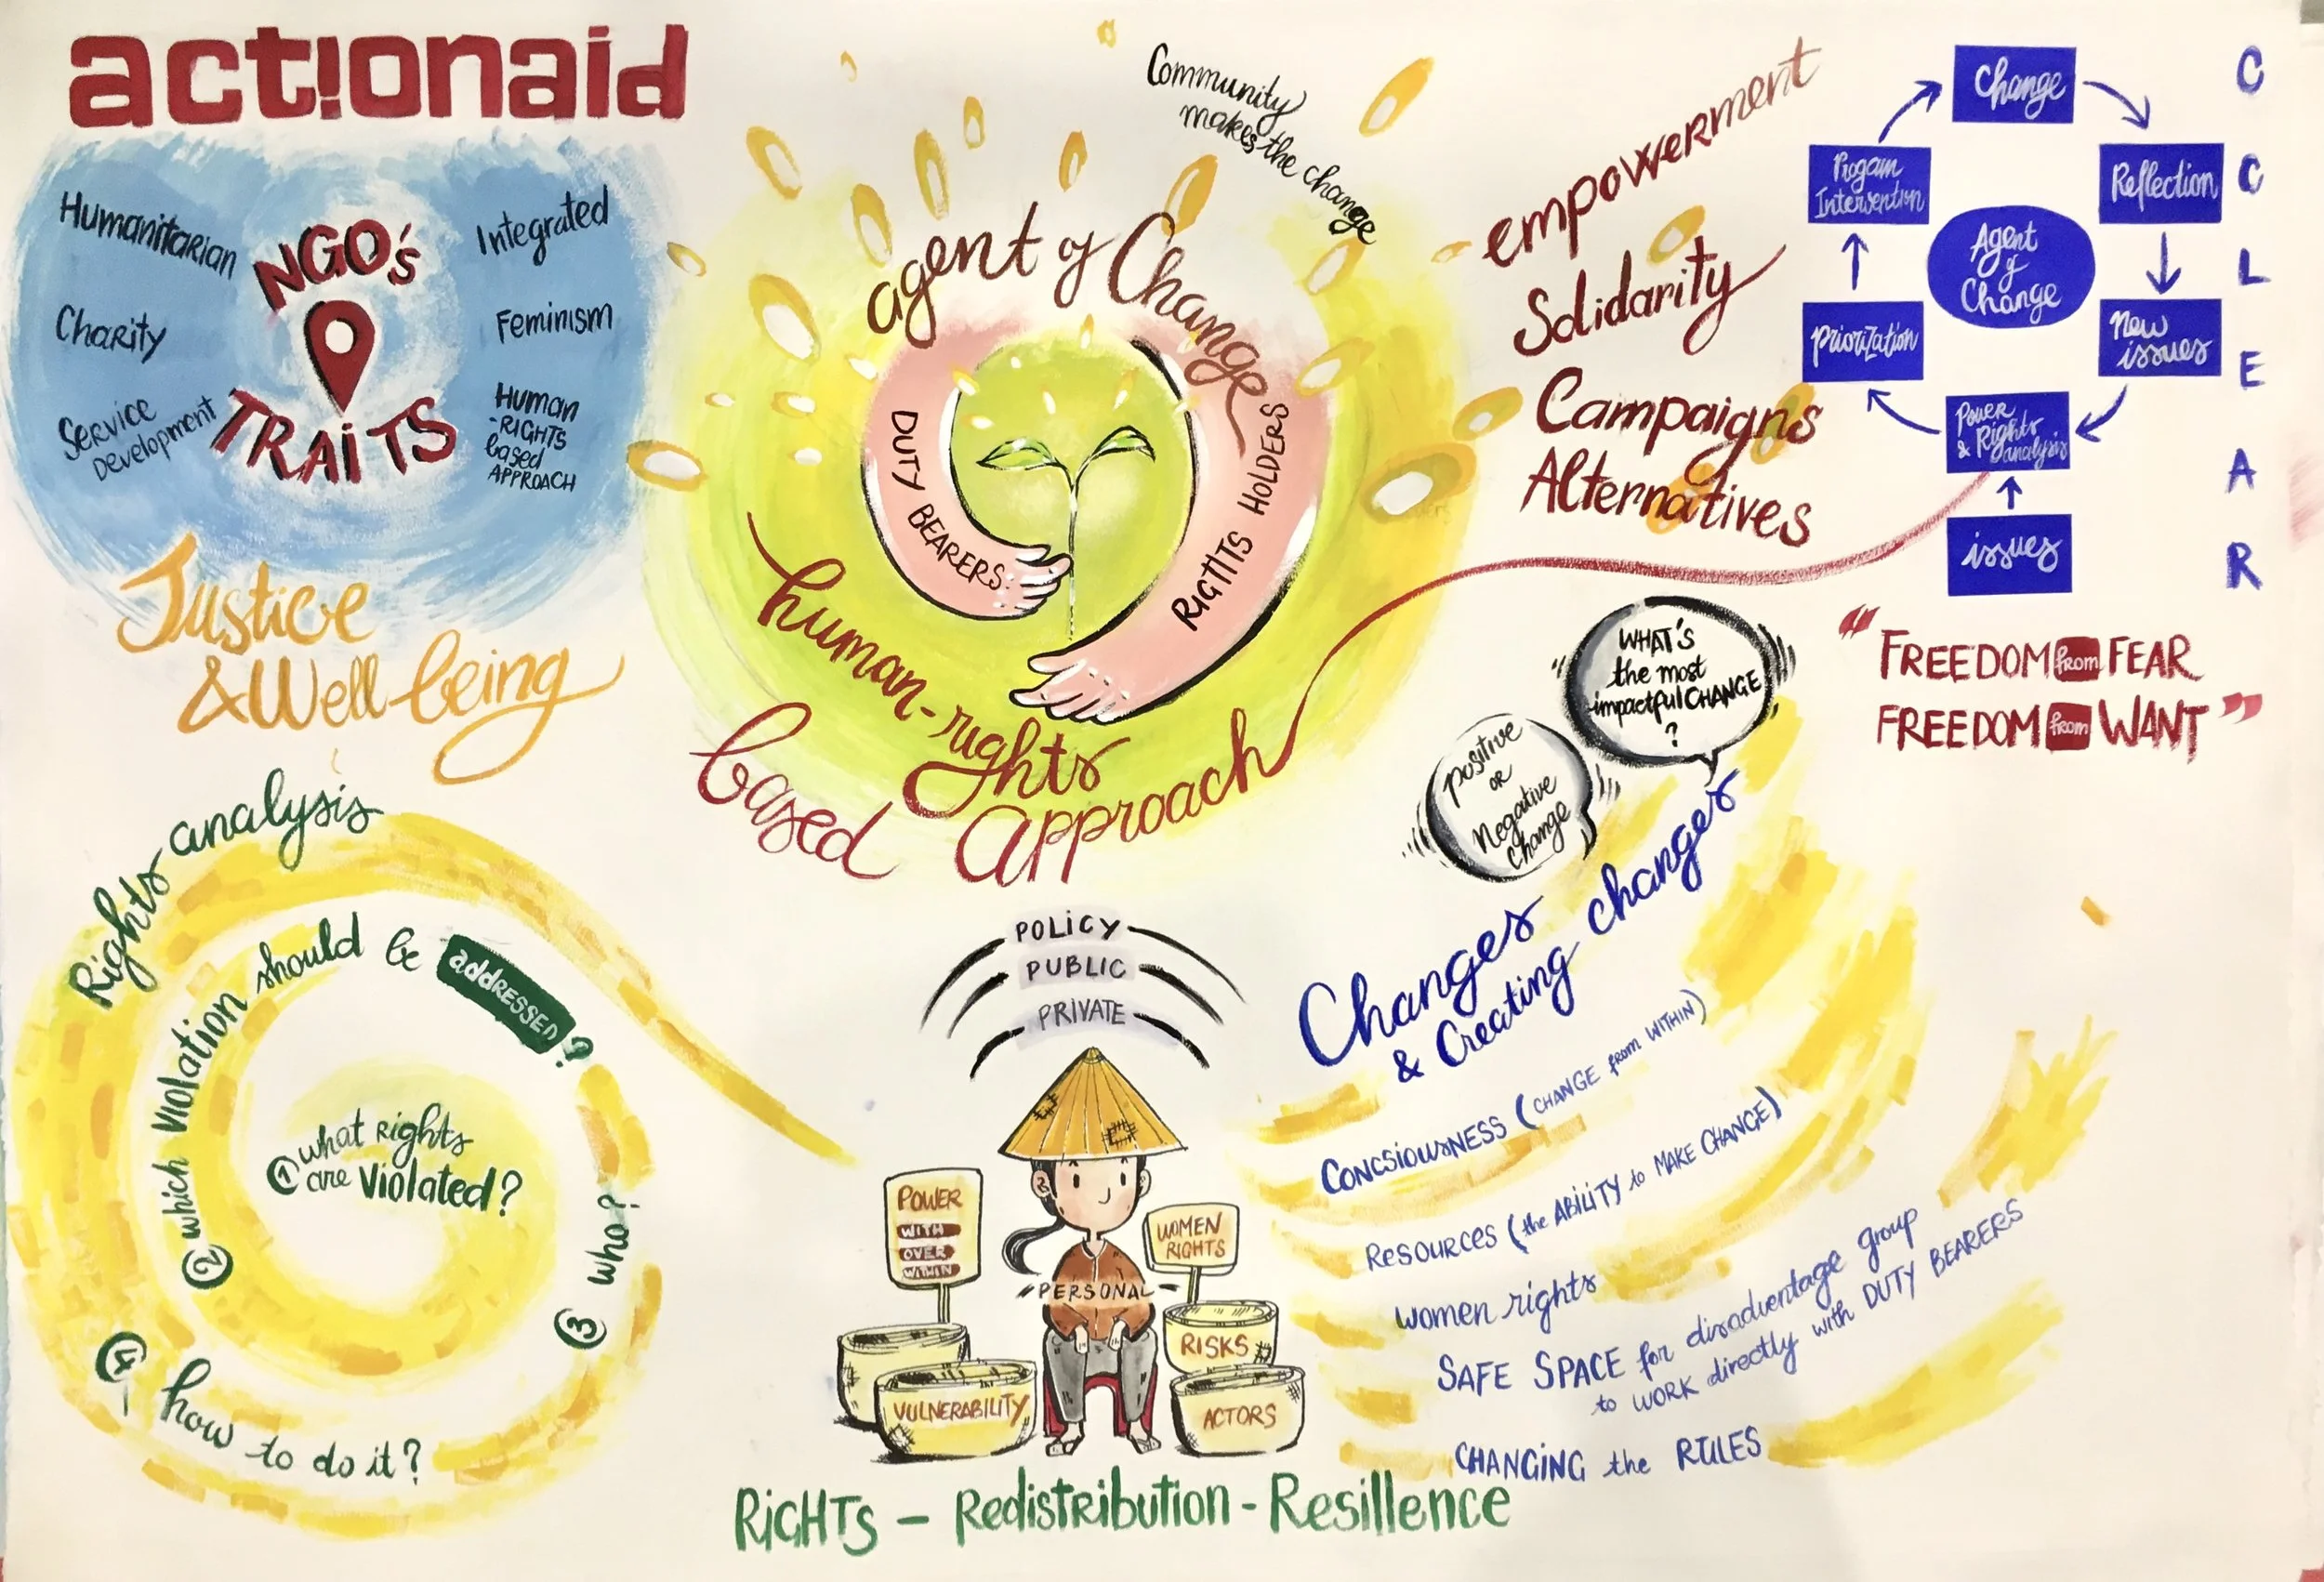 act!onaid
Humanitarian
Charity
Service
Development
NGO's
TRAiTS
Integrated
Feminism
HUMAN
-RIGHTS
based
APPROACH
Justice
& Well-being
Community
makes the change
agent of Change
DUTY BEARERS
RIGHTS HOLDERS
human-rights
based approach
empowerment
Solidarity
Campaigns
Alternatives
Change
Reflection
New
issues
Power
& Rights
analysis
issues
Priorization
Progam
Intervention
Agent
of
Change
C
C
L
E
A
R
"FREEDOM from FEAR
FREEDOM from WANT"
WHAT'S
the most
impactful CHANGE
?
positive
OR
Negative
change
Rights analysis
① what Rights
are violated?
② which violation should be addressed?
③ who?
④ how to do it?
POLiCY
PUBLIC
PRIVATE
POWER
WITH
OVER
WITHIN
WOMEN
RIGHTS
PERSONAL
RISKS
VULNERABILITY
ACTORS
RiGHTs – Redistribution - Resillence
Changes
& Creating changes
CONCSIOUSNESS (CHANGE from WITHIN)
RESOURCES (the ABILITY to MAKE CHANGE)
women rights
SAFE SPACE for disadventage group
to WORK directly with DUTY BEARERS
CHANGING the RULES